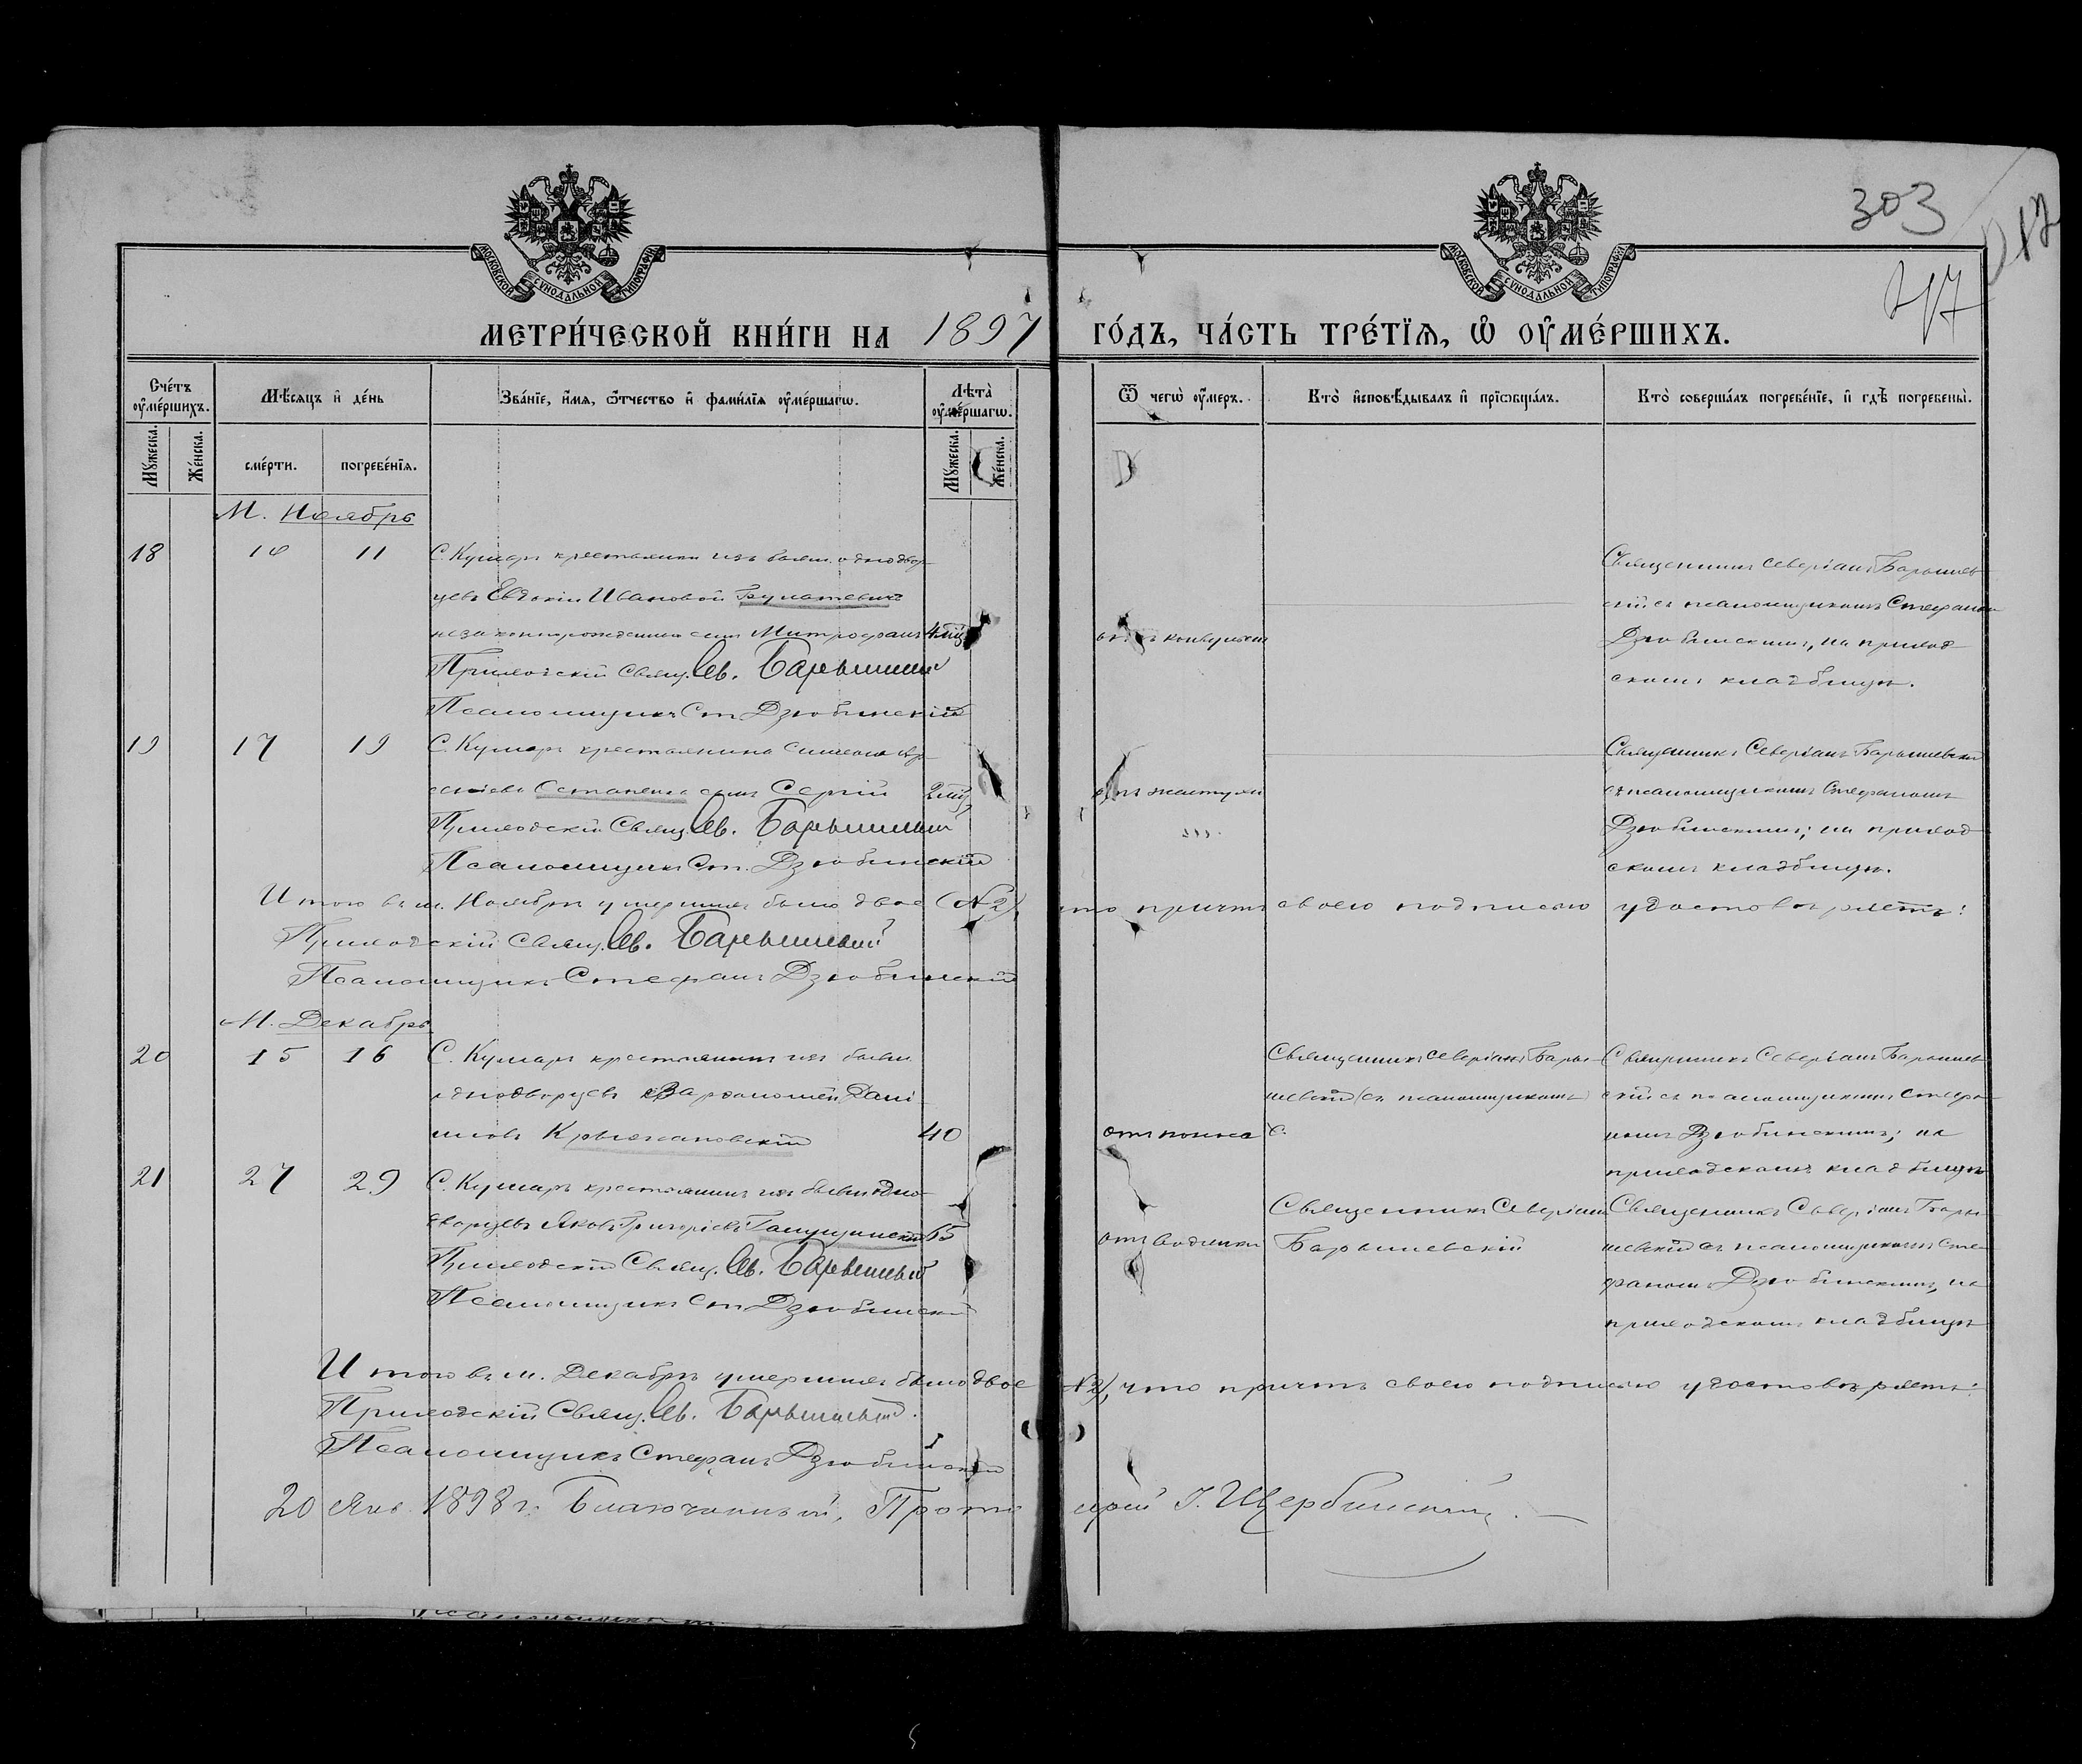 303
217
МОСКОВСКОЙ СѴНОДАЛЬНОЙ ТИПОГРАФІИ
МОСКОВСКОЙ СѴНОДАЛЬНОЙ ТИПОГРАФІИ
МЕТРИ́ЧЕСКОЙ КНИ́ГИ НА 1897 ГО́ДЪ, ЧА́СТЬ ТРЕ́ТЇѦ, Ѡ҆ ОУ҆МЕ́РШИХЪ.
Сче́тъ оу҆ме́ршихъ.
Мѣ́сѧцъ и҆ де́нь
Зва́нїе, и҆́мѧ, ѻ҆́тчество и҆ фами́лїѧ оу҆ме́ршагѡ.
Лѣ́та оу҆ме́ршагѡ.
Ѿ чегѡ̀ оу҆́меръ.
Кто̀ и҆сповѣ́дывалъ и҆ прїѡбща́лъ.
Кто̀ соверша́лъ погребе́нїе, и҆ гдѣ̀ погребены̀.
Мꙋ́жеска.
Же́нска.
сме́рти.
погребе́нїѧ.
Мꙋ́жеска.
Же́нска.
М. Ноябрь
18 10 11 С. Кушаръ крестьянки изъ бывш. однодвор-
цевъ Евдокіи Ивановой
незаконнорожденный сынъ Митрофанъ 4 мѣс
Приходскій Свящ. Сев. Барышевскій
Псаломщикъ Ст. Дзюбинскій
Священникъ Северіанъ Барышев-
скій съ псаломщикомъ Стефаномъ
Дзюбинскимъ, на приход-
скомъ кладбищѣ.
19 17 19 С. Кушаръ крестьянина
сынъ Сергій 2 мѣс
Приходскій Свящ. Сев. Барышевскій
Псаломщикъ Ст. Дзюбинскій
Священникъ Северіанъ Барышевскій
съ псаломщикомъ Стефаномъ
Дзюбинскимъ; на приход-
скомъ кладбищѣ.
Итого въ м. Ноябрѣ умершихъ было двое (№ 2), что причтъ своею подписью удостовѣряетъ:
Приходскій Свящ. Сев. Барышевскій
Псаломщикъ Стефанъ Дзюбинскій
М. Декабрь
20 15 16 С. Кушаръ крестьянинъ изъ бывш.
однодворцевъ Варѳоломей Дані-
иловъ Крыжановскій 40
отъ поноса
Священникъ Северіанъ Бары-
шевскій (съ псаломщикомъ)
С.
Священникъ Северіанъ Барышев-
скій съ псаломщикомъ Стефа-
номъ Дзюбинскимъ; на
приходскомъ кладбищѣ
21 27 29 С. Кушаръ крестьянинъ изъ бывш. одно-
дворцевъ Яковъ Григоріевъ 65
Приходскій Свящ. Сев. Барышевскій
Псаломщикъ Ст. Дзюбинскій
отъ водянки
Священникъ Северіанъ
Барышевскій
Священникъ Северіанъ Бары-
шевскій съ псаломщикомъ Сте-
фаномъ Дзюбинскимъ, на
приходскомъ кладбищѣ
Итого въ м. Декабрѣ умершихъ было двое (№ 2), что причтъ своею подписью удостовѣряетъ:
Приходскій Свящ. Сев. Барышевскій.
Псаломщикъ Стефанъ Дзюбинскій
20 Янв. 1898 г. Благочинный, Протоіерей І. Щербинскій.